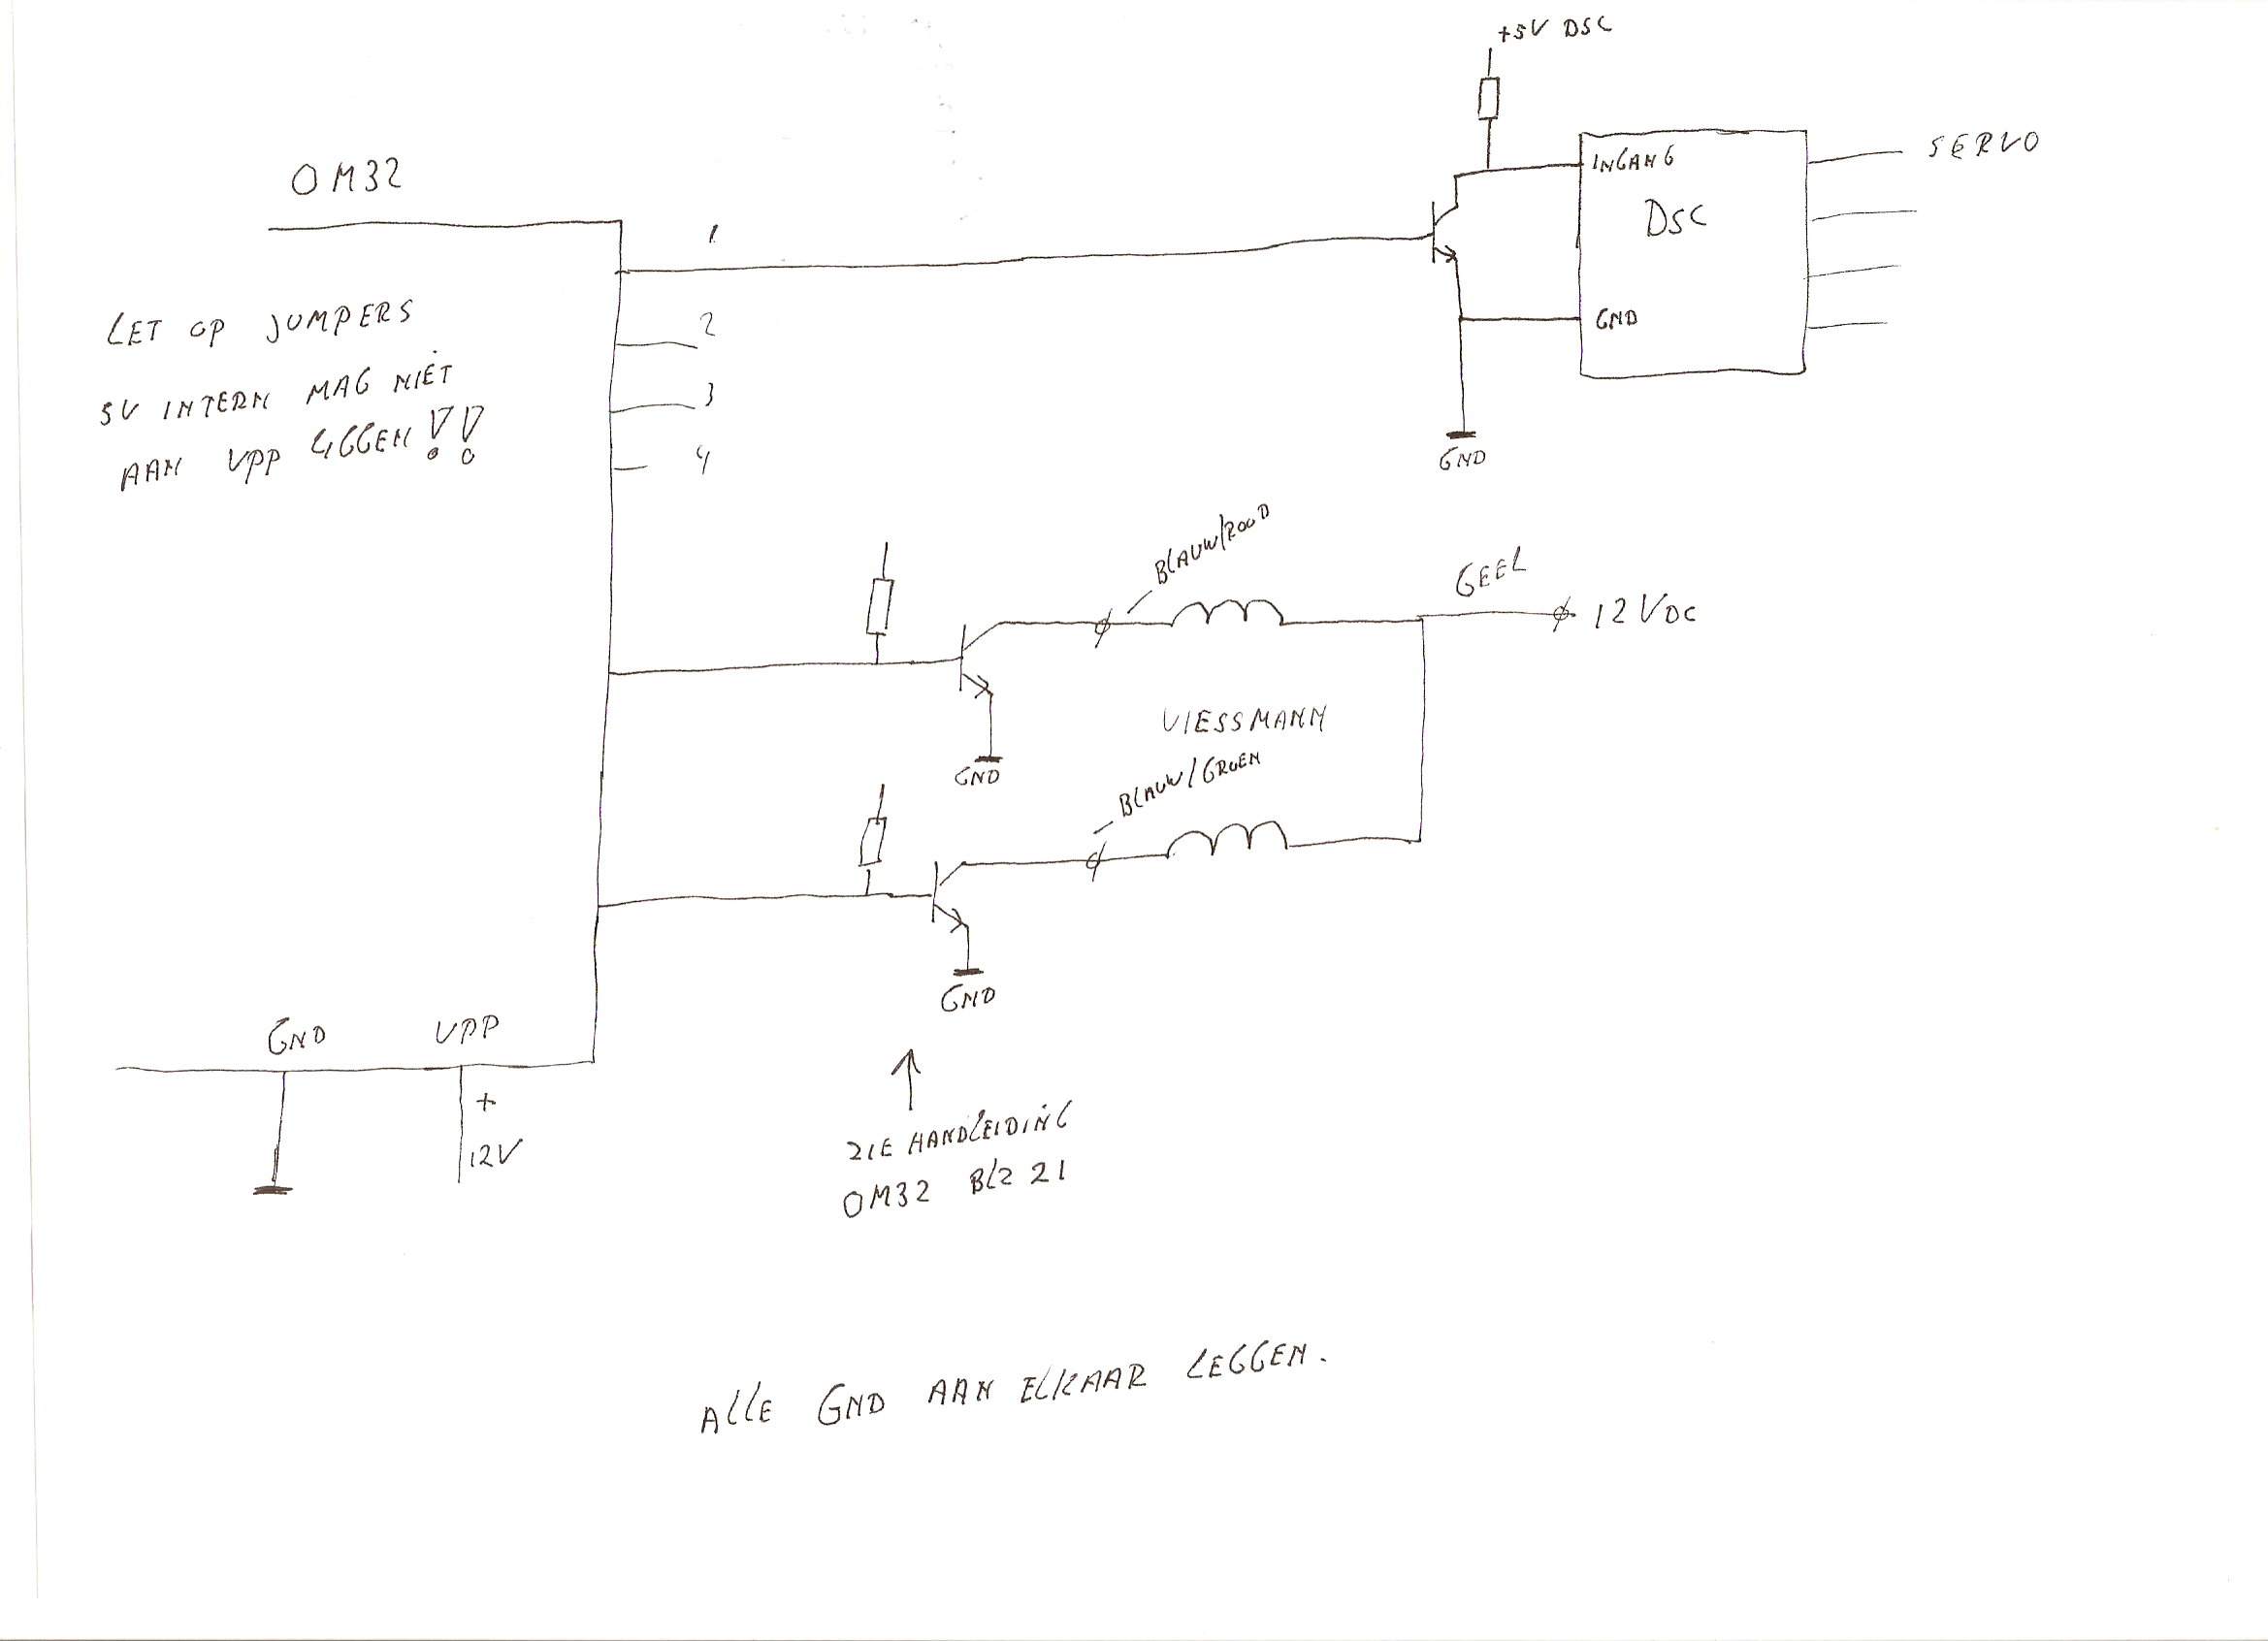 +5V DSC
SERVO
INGANG
DSC
GND
GND
OM32
1
2
3
4
LET OP JUMPERS
5V INTERN MAG NIET
AAN VPP LIGGEN!!
BLAUW/ROOD
GEEL
12VDC
GND
VIESSMANN
BLAUW/GROEN
GND
GND
VPP
+
12V
ZIE HANDLEIDING
OM32 BLZ 21
ALLE GND AAN ELKAAR LEGGEN.